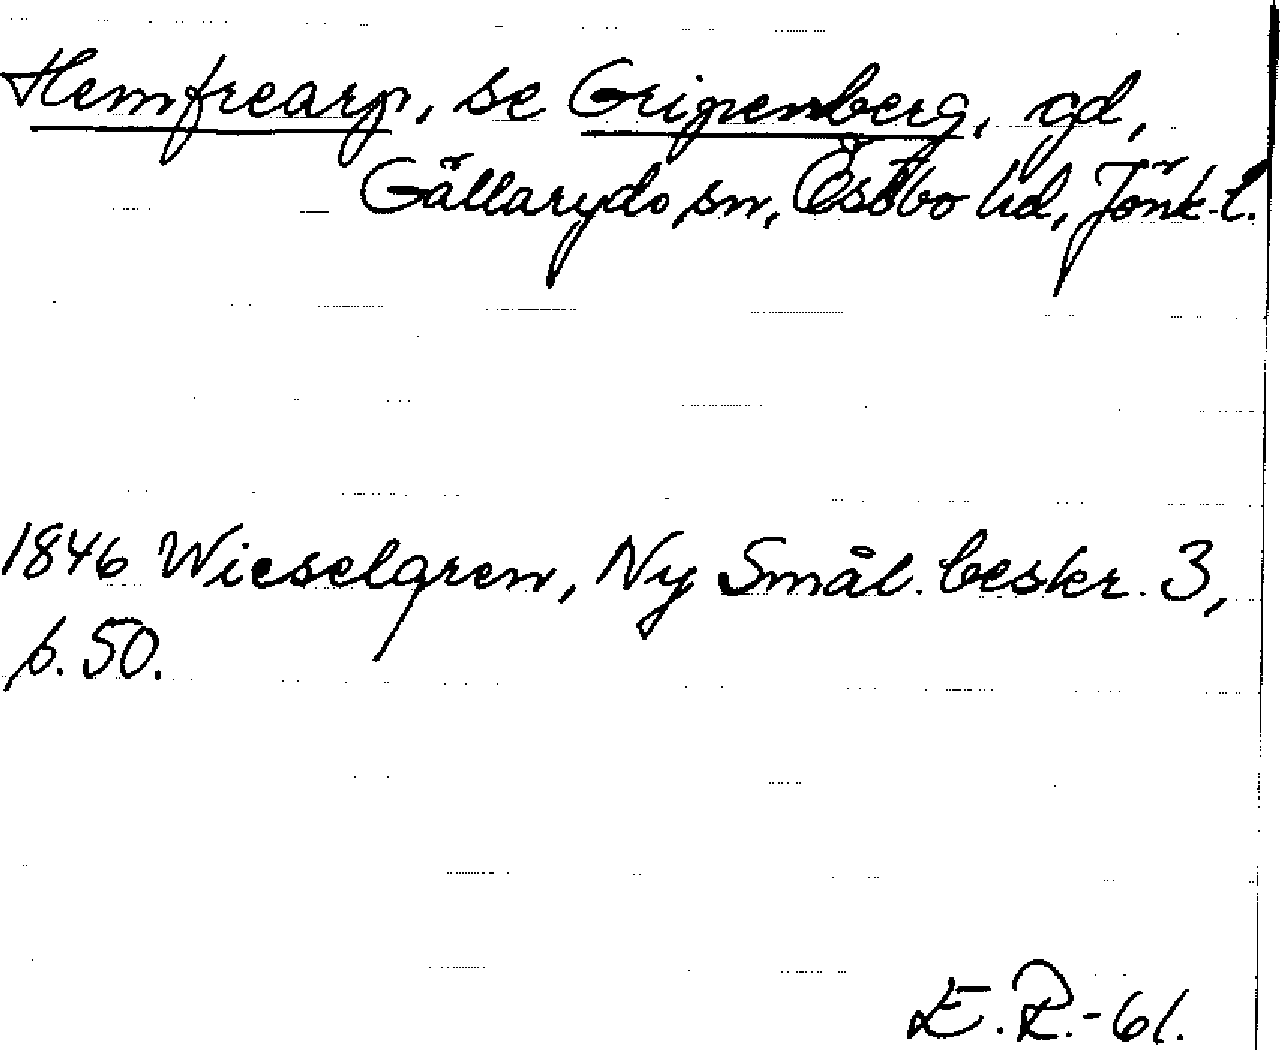 Hemfrearp, se Gripenberg, gd,
Gällaryds sn, Östbo hd, Jönk. l.
1846 Wieselgren, Ny Smål. beskr. 3,
s. 50.
E.R.-61.